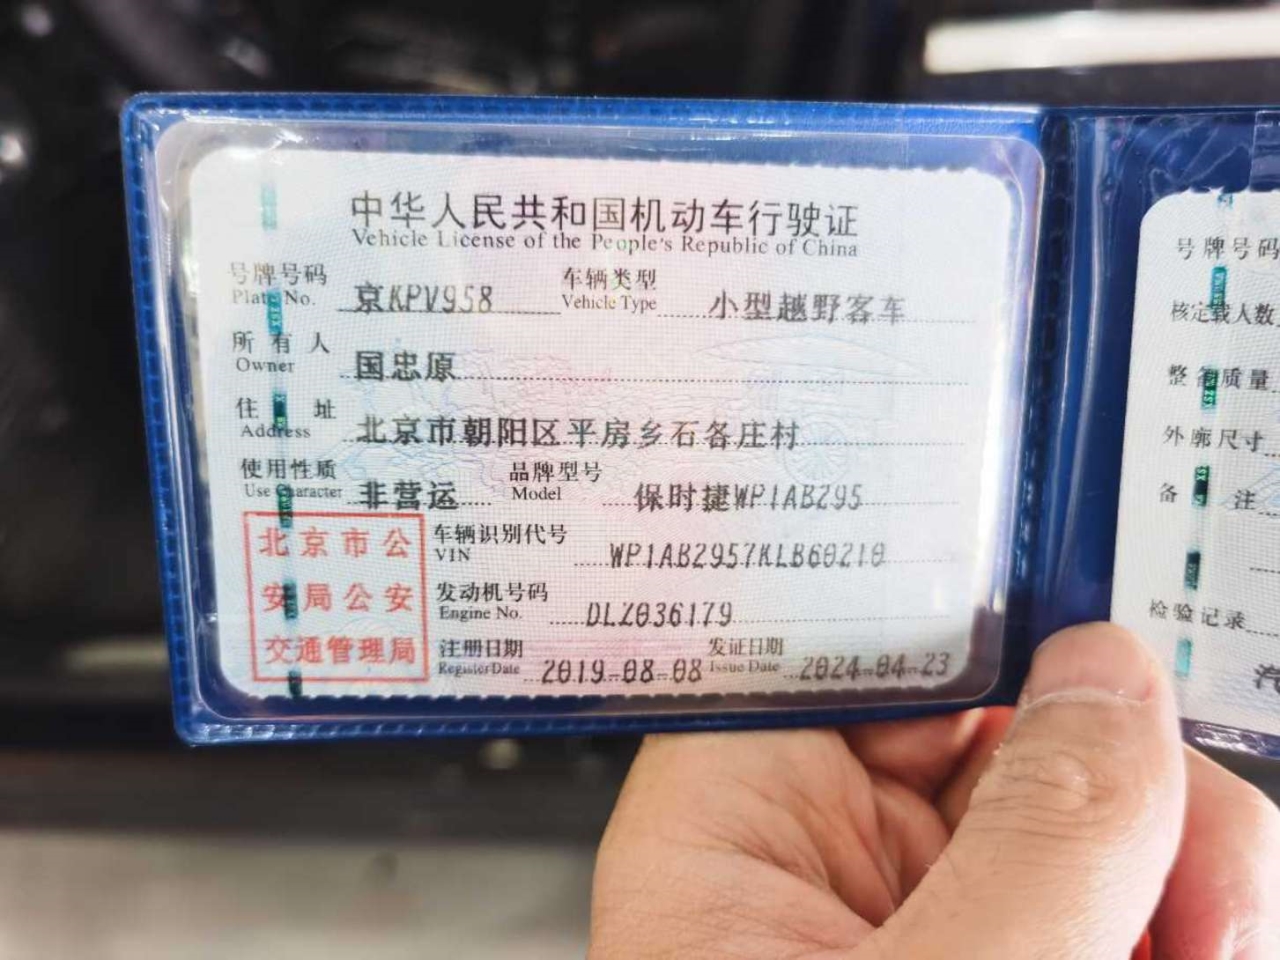 中华人民共和国机动车行驶证
Vehicle License of the People's Republic of China
号牌号码 京KPV958 车辆类型 小型越野客车
Plate No. Vehicle Type
所有人 国忠原
Owner
住址 北京市朝阳区平房乡石各庄村
Address
使用性质 非营运 品牌型号 保时捷WP1AB295
Use Character Model
北京市公
安局公安
交通管理局
车辆识别代号 WP1AB2957KLB60210
VIN
发动机号码 DLZ036179
Engine No.
注册日期 2019-08-08 发证日期 2024-04-23
Register Date Issue Date
号牌号码
核定载人数
整备质量
外廓尺寸
备注
检验记录